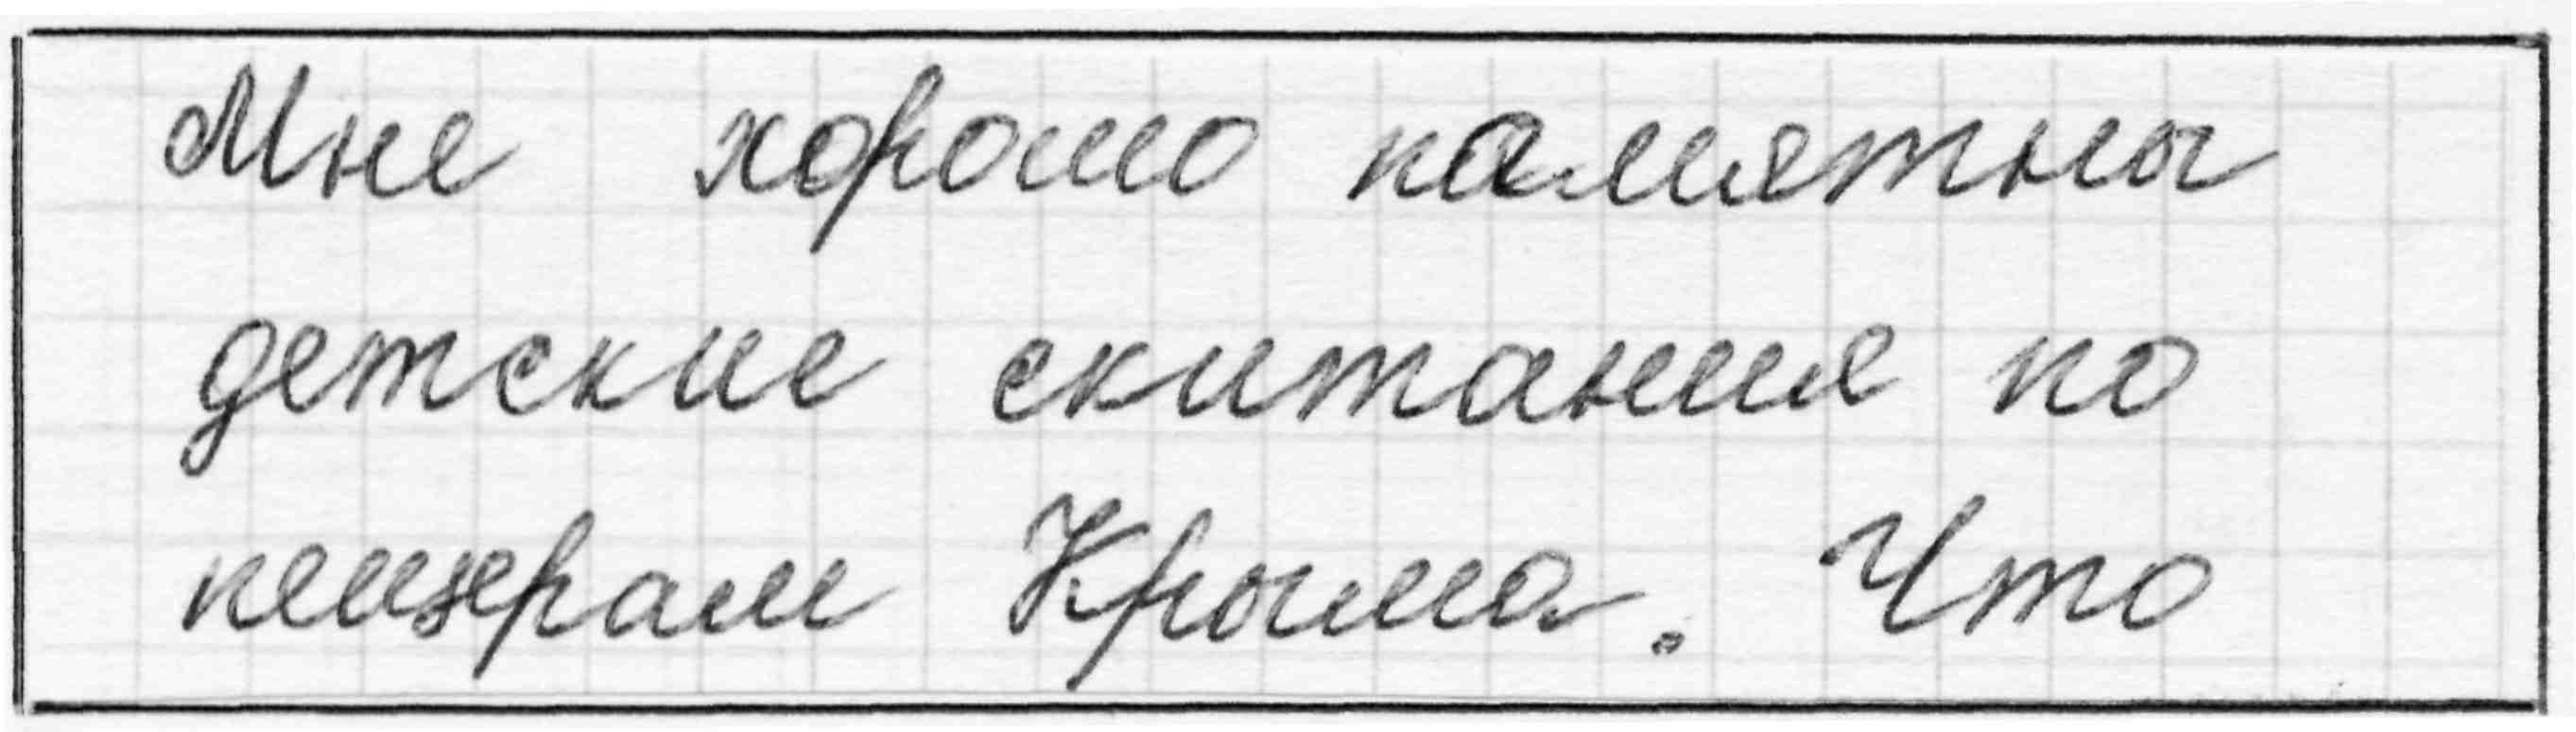 Мне хорошо памятны
детские скитания по
пещерам Крыма. Что